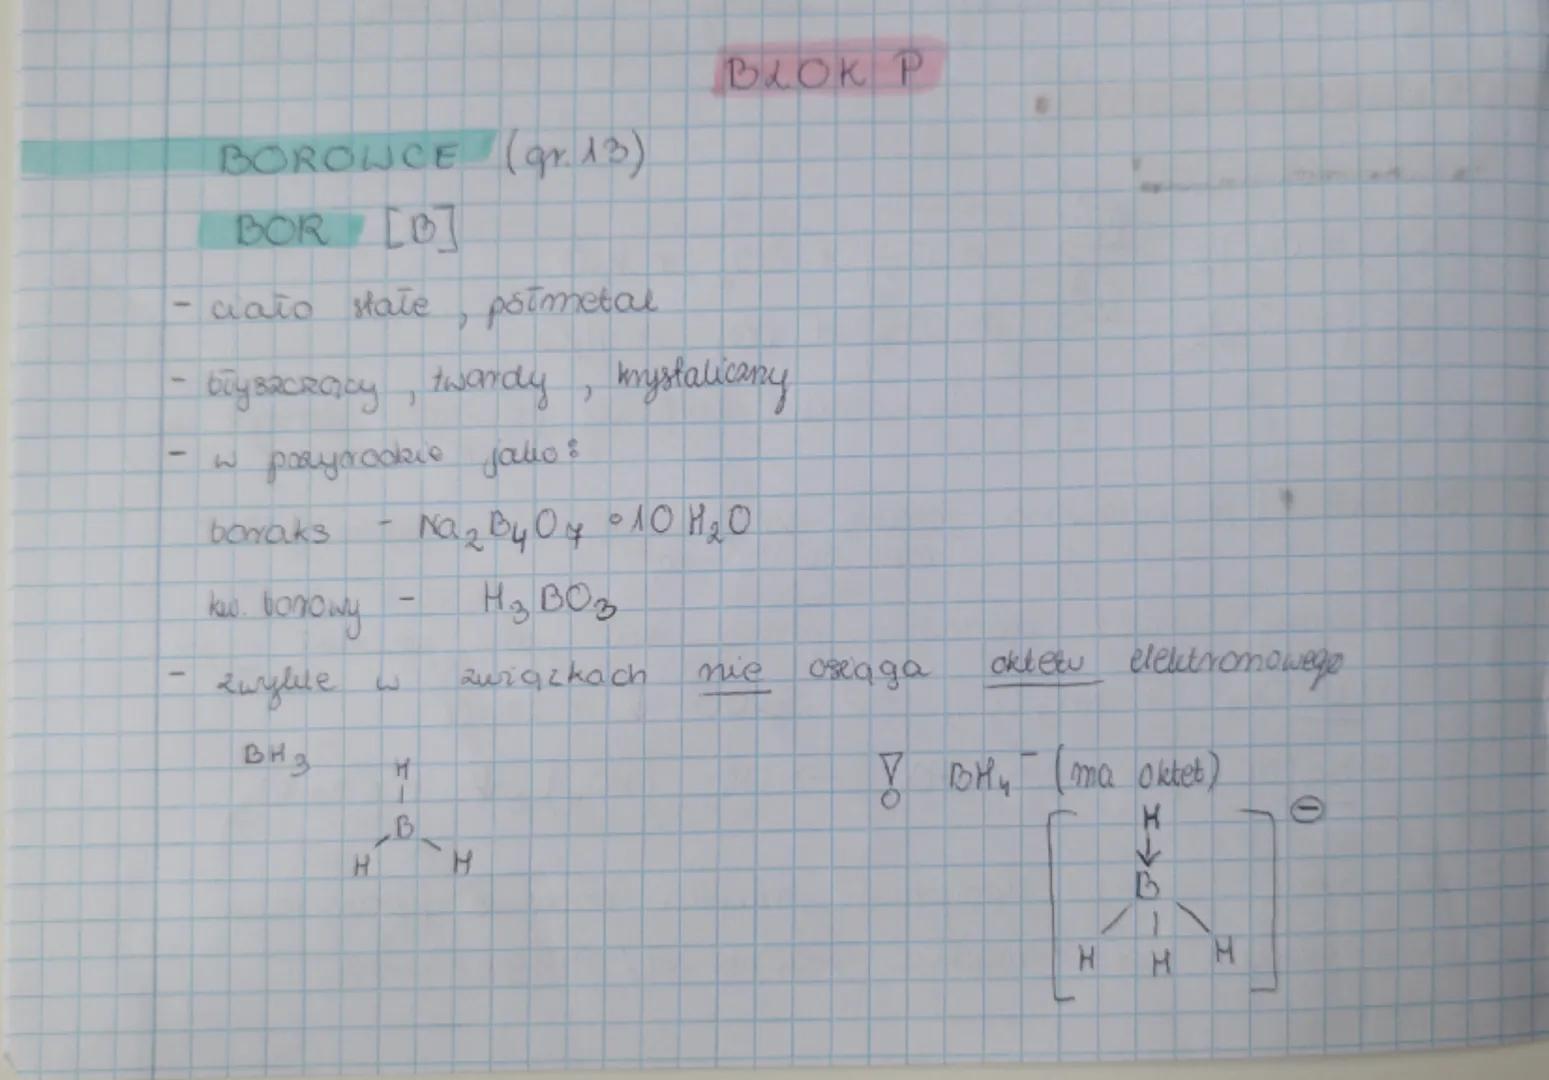 BŁOK P
BOROWCE (gr. 13)
BOR [B]
- ciało stałe, półmetal
- błyszczący, twardy, krystaliczny
- w przyrodzie jako:
boraks - Na₂B₄O₇ • 10 H₂O
kw. borowy - H₃BO₃
- zwykle w związkach nie osiąga oktetu elektronowego
BH₃
H
B
H H
! BH₄⁻ (ma oktet)
H ⊖
B
H H H